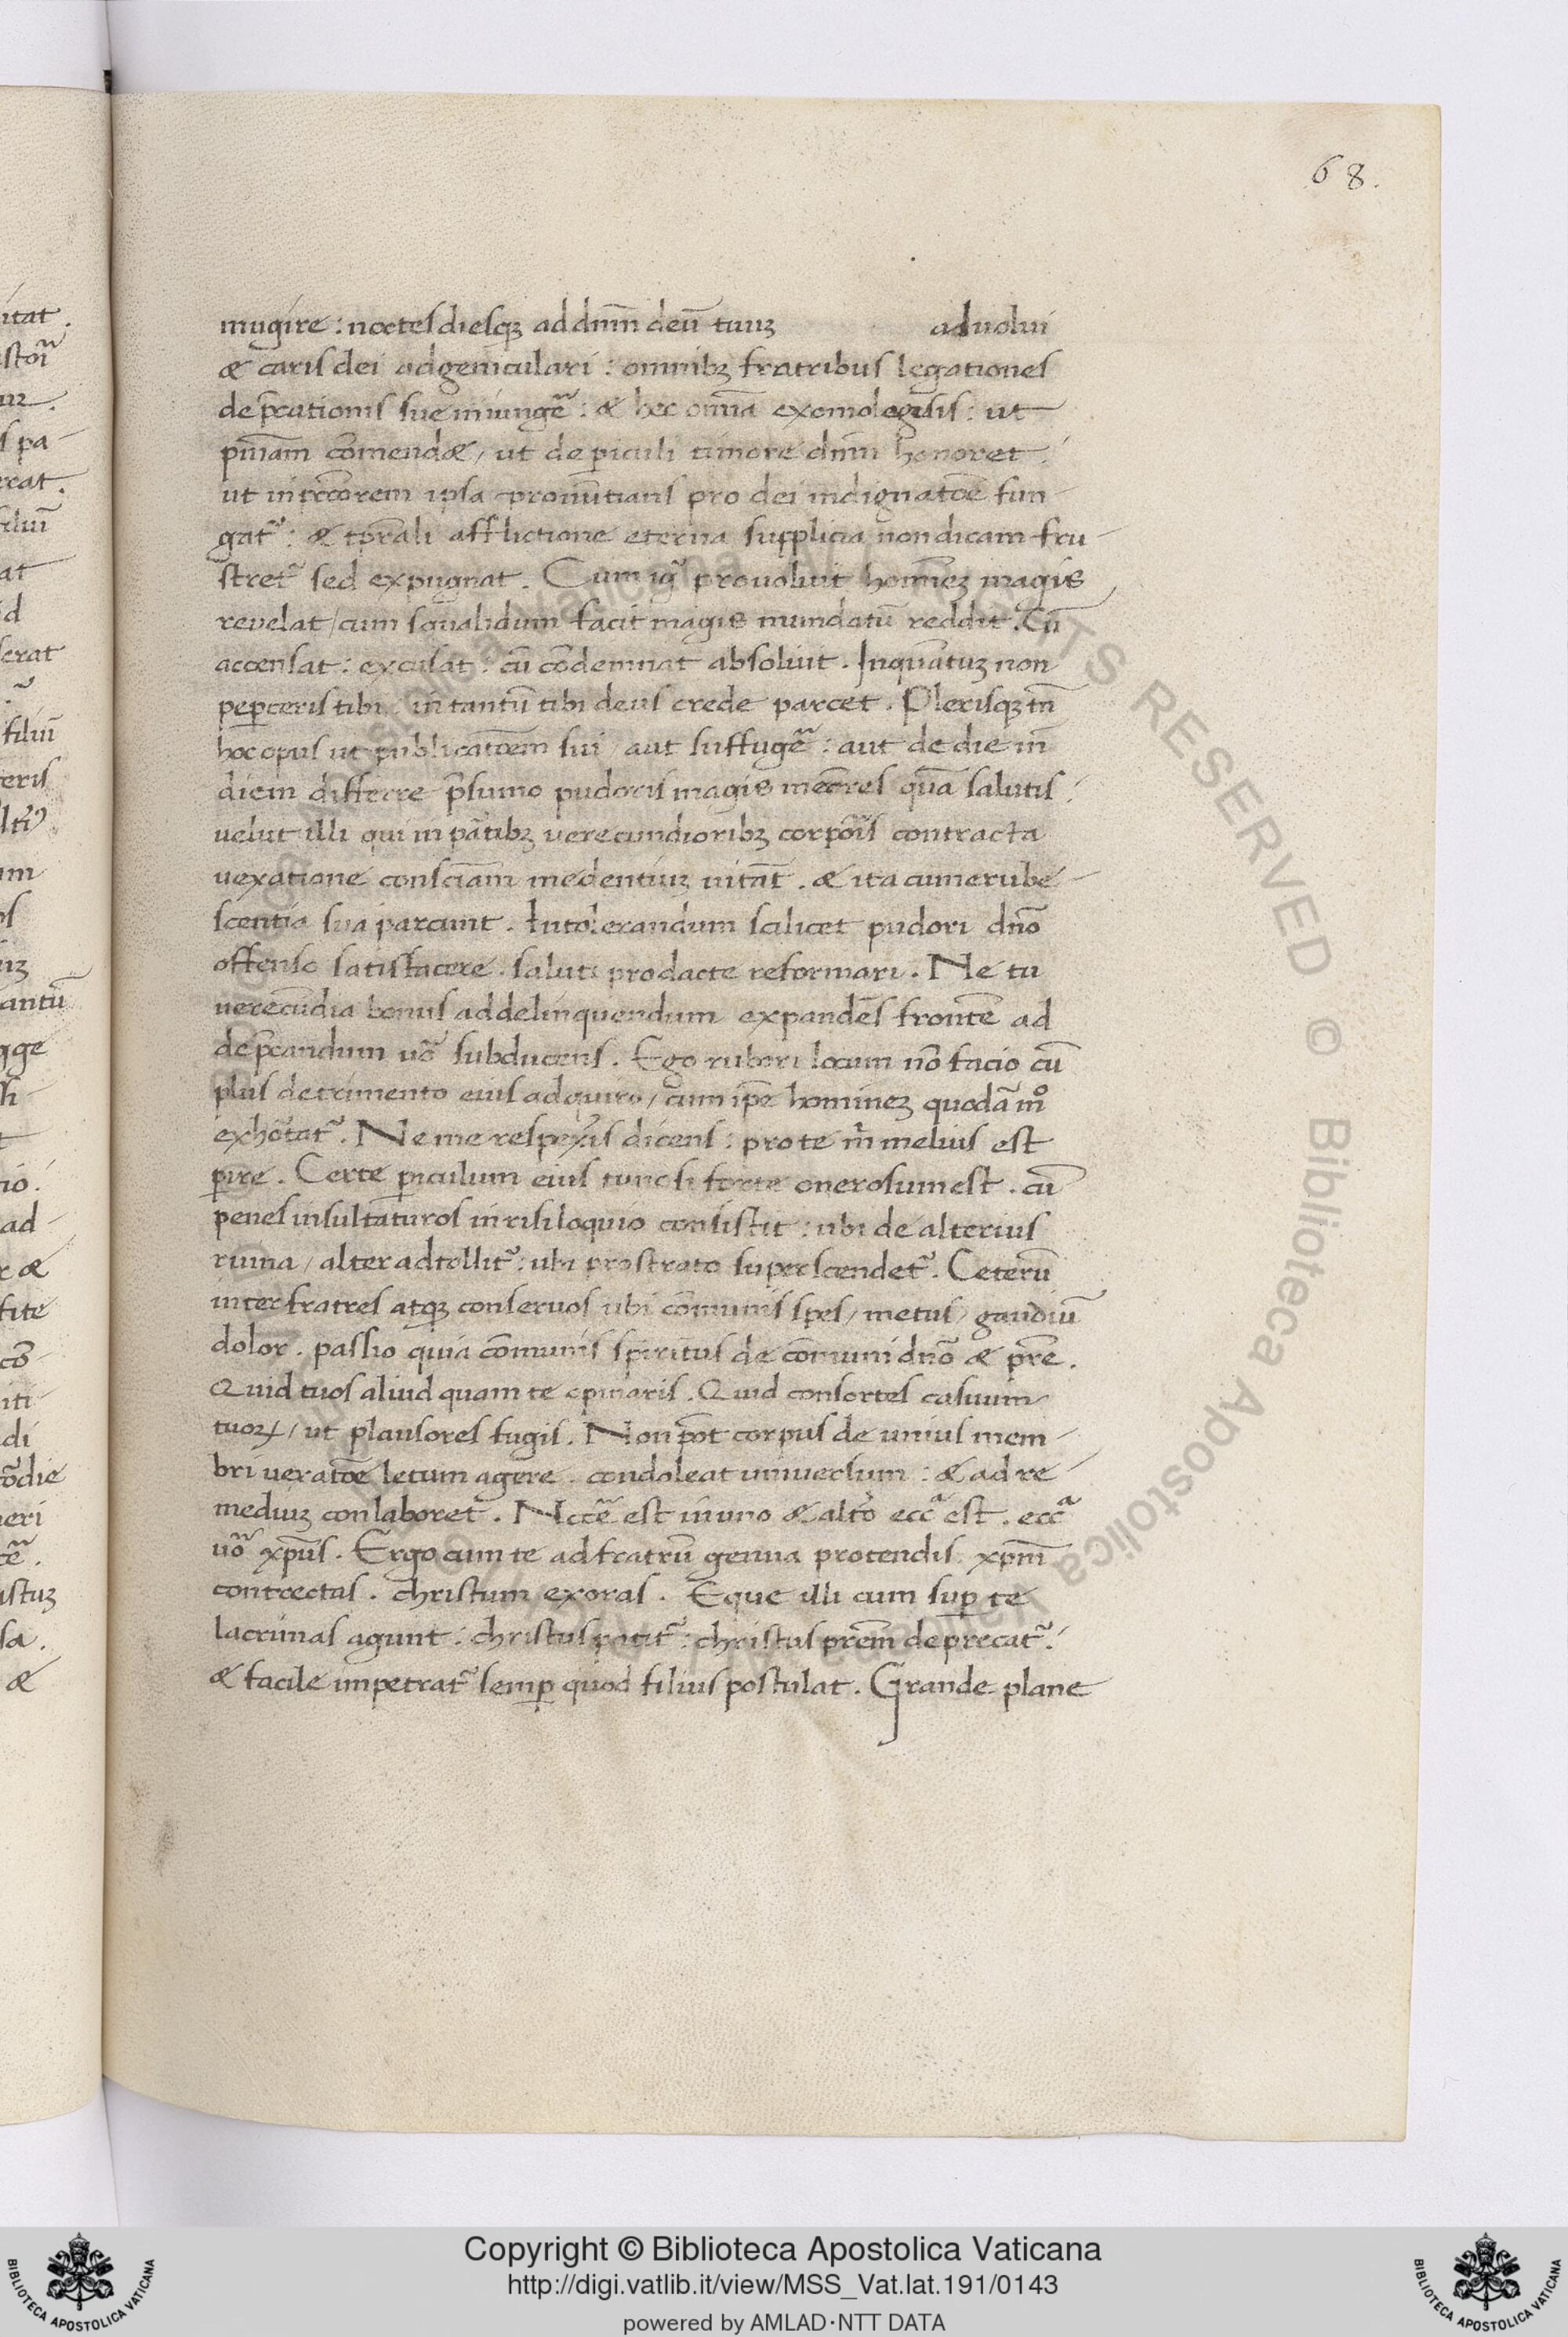 68.
mugire : noctes diesqꝫ ad dn̄m deū tuuꝫ aduolui
& caris dei adgeniculari : omnibꝫ fratribus legationes
dep̄cationis sue iniungē : & hec om̄ia exomolegisis : ut
pn̄iam cōmend&, ut de ꝑiculi timore dn̄m honoret :
ut in pc̄c̄orem ipsa pronūtians pro dei indignatōe fun-
gat᷑ : & tp̄rali afflictione eterna supplicia non dicam fru-
stret᷑ sed expugnat. Cum igr̄ prouoluit homineꝫ magis
revelat, cum squalidum facit magis mundatū reddit. Cū
accensat : excusat : cū cōdemnat absoluit. Inquātuꝫ non
peꝑceris tibi in tantū tibi deus crede parcet. Plerisqꝫ tn̄
hoc opus ut publicatōem sui, aut suffugē : aut de die in
diem differre p̄sumo pudoris magis mem̄res quā salutis :
uelut illi qui in pātibꝫ verecundioribꝫ corpōis contracta
uexatione consciām medentiuꝫ uitāt. & ita cum erube-
scentia sua parcunt. Intolerandum scilicet pudori dn̄o
offenso satisfacere. saluti prodacte reformari. Ne tu
uerecūdia bonus ad delinquendum expandēs frontē ad
dep̄candum uō subducens. Ego rubori locum nō facio cū
plus detrimento eius adquiro, cum ip̄e homineꝫ quodā mº
exhōtat᷑. Ne me respexis dicens : pro te m̄ melius est
ꝑire. Certe ꝑiculum eius tunc si forte onerosum est. cū
penes insultaturos in risiloquio consistit : ubi de alterius
ruina, alter adtollit᷑ : ubi prostrato superscendet᷑. Ceterū
inter fratres atqꝫ conseruos ubi cōmunis spes, metus, gaudiū
dolor. passio quia cōmunis spiritus de cōmuni dn̄o & p̄re.
Quid tuos aliud quam te opinaris. Quid consortes casuum
tuoꝝ, ut plausores fugis. Non pōt corpus de unius mem-
bri uexatōe letum agere. condoleat uniuersum : & ad re-
mediuꝫ conlaboret᷑. Nccē est in uno & altō eccā est. eccā
uō xp̄us. Ergo cum te ad fratrū genua protendis xp̄m
contrectas. christum exoras. Eque illi cum suꝑ te
lacrimas agunt : christus patit᷑ : christus p̄rem deprecat᷑ :
& facile impetrat᷑ semꝑ quod filius postulat. Grande plane
Copyright © Biblioteca Apostolica Vaticana
http://digi.vatlib.it/view/MSS_Vat.lat.191/0143
powered by AMLAD·NTT DATA